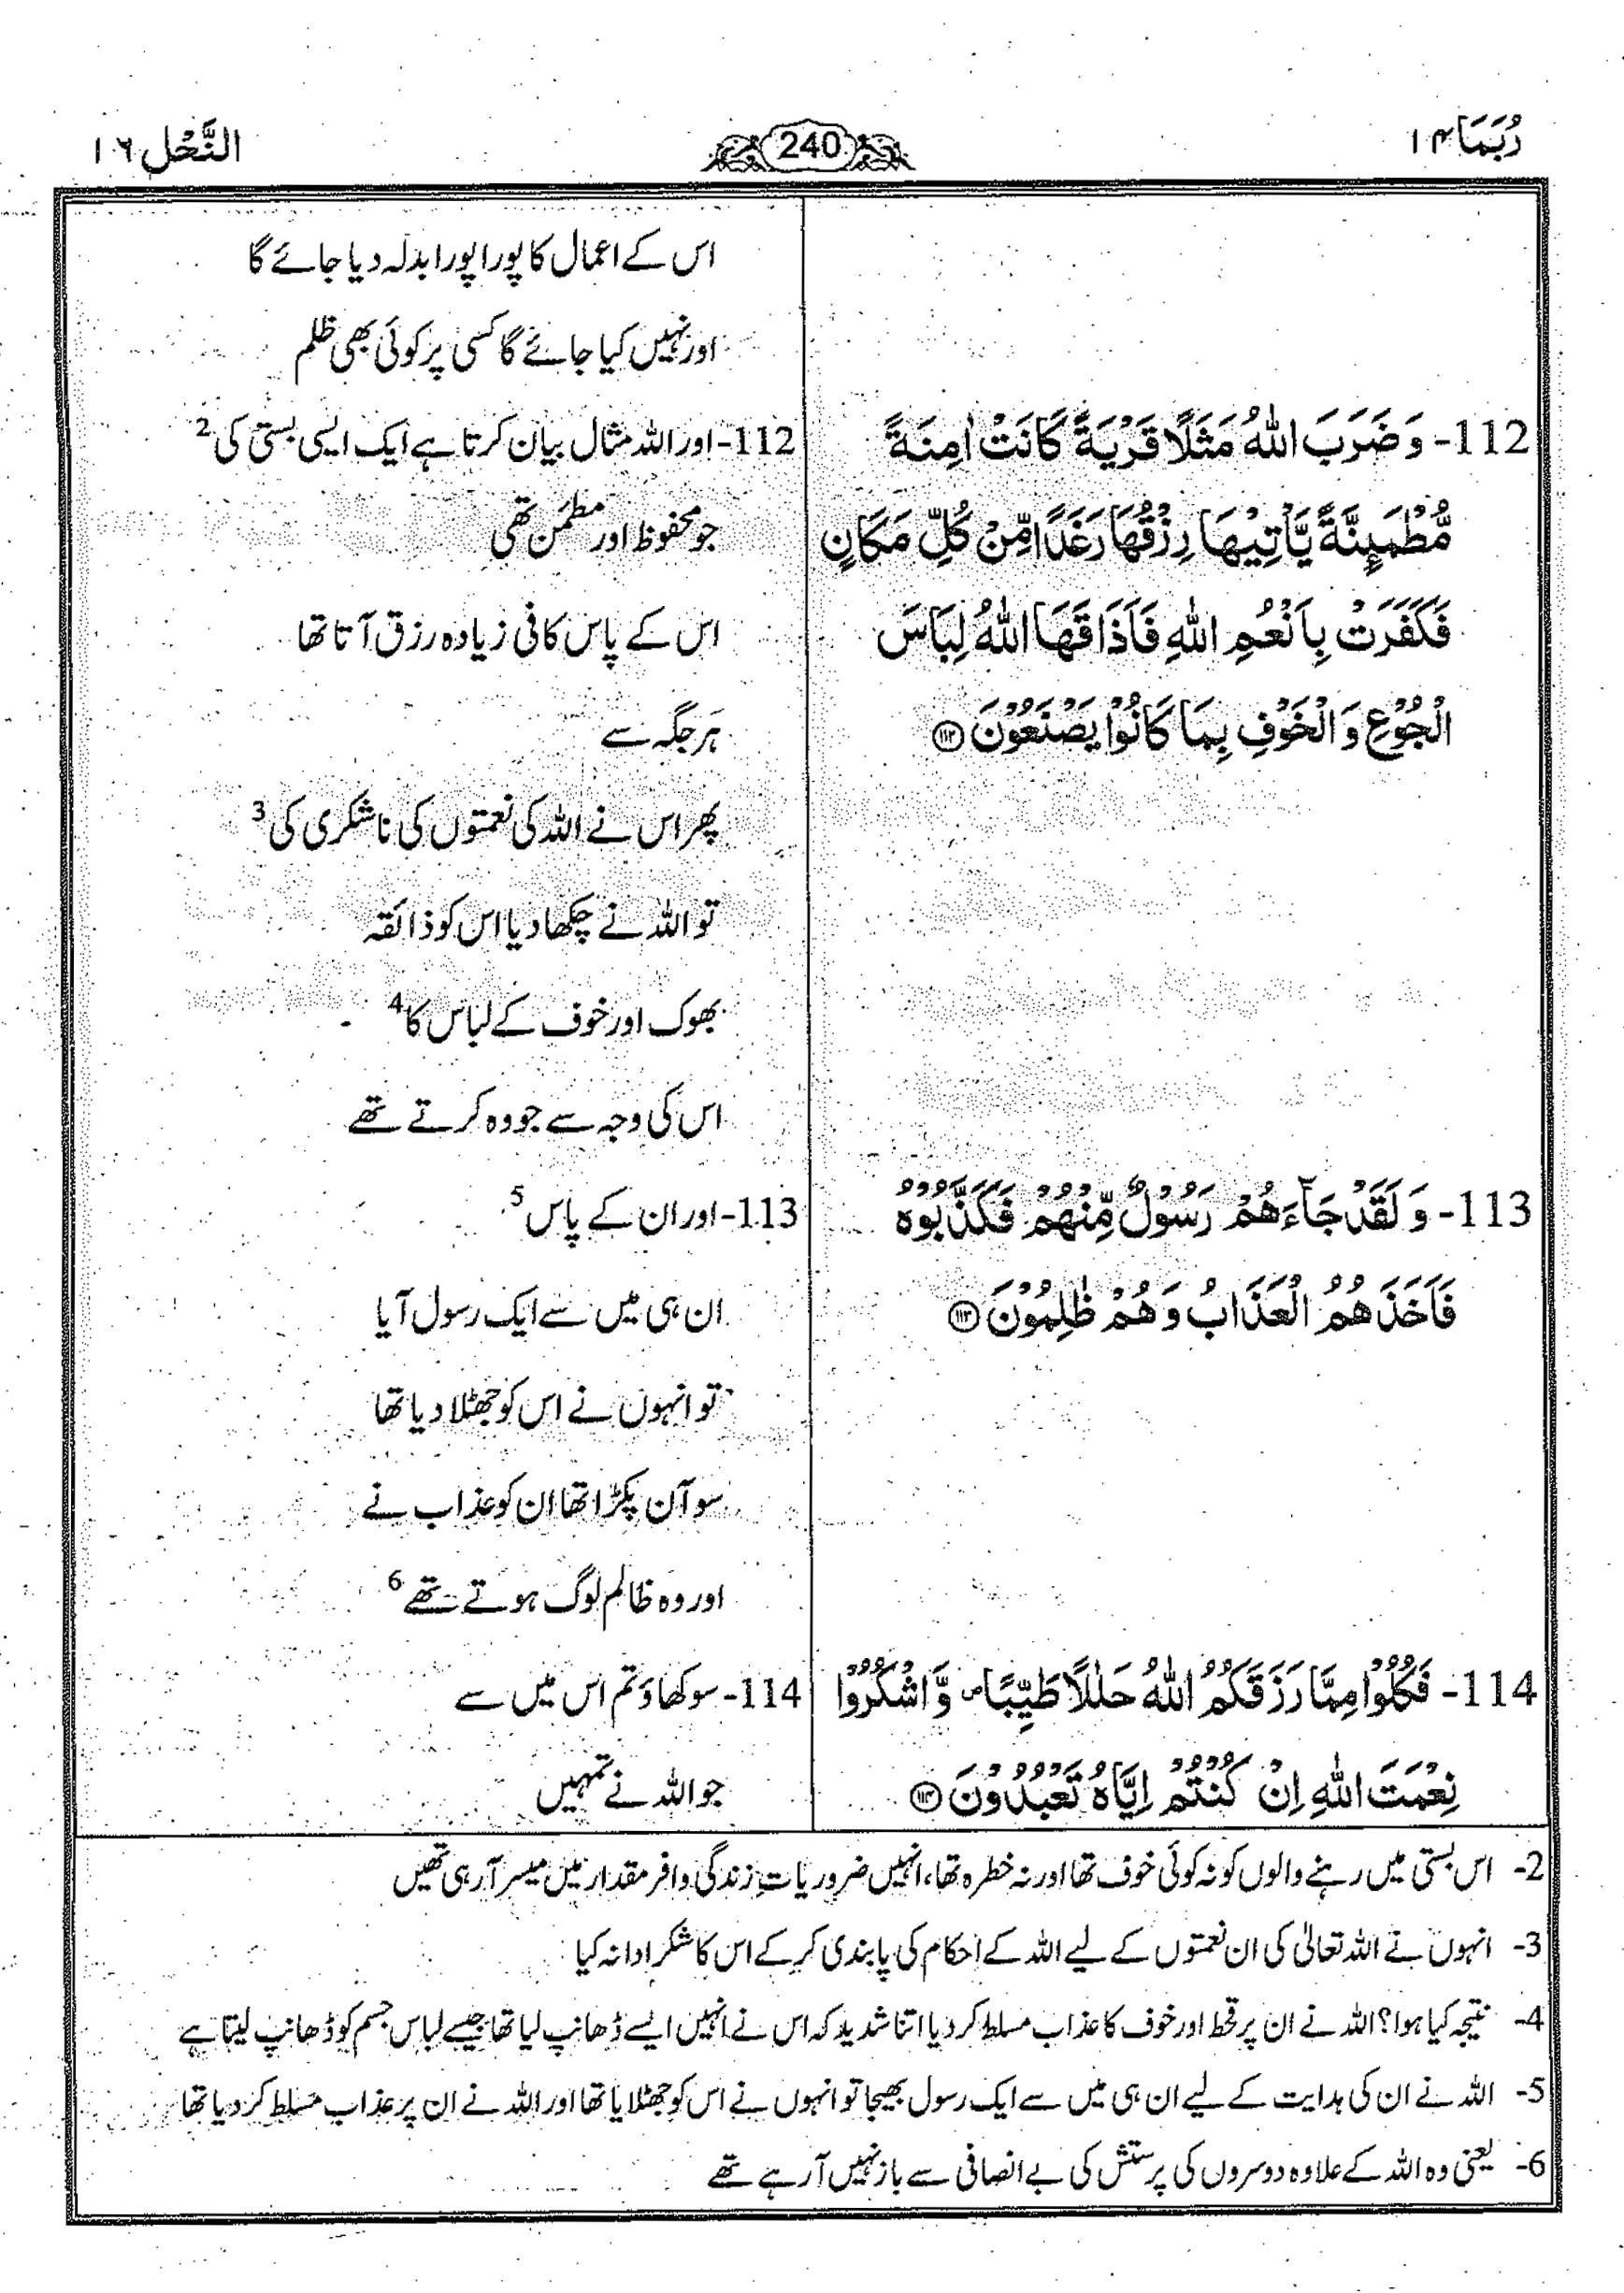 رُبَمَا ۱۴
240
النَّحْل ۱۶
اس کے اعمال کا پورا پورا بدلہ دیا جائے گا
اور نہیں کیا جائے گا کسی پر کوئی بھی ظلم
112- وَ ضَرَبَ اللّٰهُ مَثَلًا قَرْيَةً كَانَتْ اٰمِنَةً
مُّطْمَىِٕنَّةً يَّاْتِيْهَا رِزْقُهَا رَغَدًا مِّنْ كُلِّ مَكَانٍ
فَكَفَرَتْ بِاَنْعُمِ اللّٰهِ فَاَذَاقَهَا اللّٰهُ لِبَاسَ
الْجُوْعِ وَ الْخَوْفِ بِمَا كَانُوْا يَصْنَعُوْنَ ﴿۱۱۲﴾
112- اور اللہ مثال بیان کرتا ہے ایک ایسی بستی کی 2
جو محفوظ اور مطمئن تھی
اس کے پاس کافی زیادہ رزق آتا تھا
ہَر جگہ سے
پھر اس نے اللہ کی نعمتوں کی ناشکری کی 3
تو اللہ نے چکھا دیا اس کو ذائقہ
بھوک اور خوف کے لباس کا 4
اس کی وجہ سے جو وہ کرتے تھے
113- وَ لَقَدْ جَآءَهُمْ رَسُوْلٌ مِّنْهُمْ فَكَذَّبُوْهُ
فَاَخَذَهُمُ الْعَذَابُ وَ هُمْ ظٰلِمُوْنَ ﴿۱۱۳﴾
113- اور ان کے پاس 5
ان ہی میں سے ایک رسول آیا
تو انہوں نے اس کو جھٹلا دیا تھا
سو آن پکڑا تھا ان کو عذاب نے
اور وہ ظالم لوگ ہوتے تھے 6
114- فَكُلُوْا مِمَّا رَزَقَكُمُ اللّٰهُ حَلٰلًا طَيِّبًا ص وَّ اشْكُرُوْا
نِعْمَتَ اللّٰهِ اِنْ كُنْتُمْ اِيَّاهُ تَعْبُدُوْنَ ﴿۱۱۴﴾
114- سو کھاؤ تم اس میں سے
جو اللہ نے تمہیں
2- اس بستی میں رہنے والوں کو نہ کوئی خوف تھا اور نہ خطرہ تھا، انہیں ضروریاتِ زندگی وافر مقدار میں میسر آ رہی تھیں
3- انہوں نے اللہ تعالیٰ کی ان نعمتوں کے لیے اللہ کے احکام کی پابندی کر کے اس کا شکر ادا نہ کیا
4- نتیجہ کیا ہوا؟ اللہ نے ان پر قحط اور خوف کا عذاب مسلط کر دیا اتنا شدید کہ اس نے انہیں ایسے ڈھانپ لیا تھا جیسے لباس جسم کو ڈھانپ لیتا ہے
5- اللہ نے ان کی ہدایت کے لیے ان ہی میں سے ایک رسول بھیجا تو انہوں نے اس کو جھٹلایا تھا اور اللہ نے ان پر عذاب مسلط کر دیا تھا
6- یعنی وہ اللہ کے علاوہ دوسروں کی پرستش کی بے انصافی سے باز نہیں آ رہے تھے